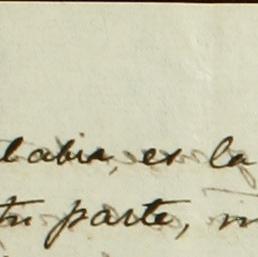 labia, es la
tu parte, m